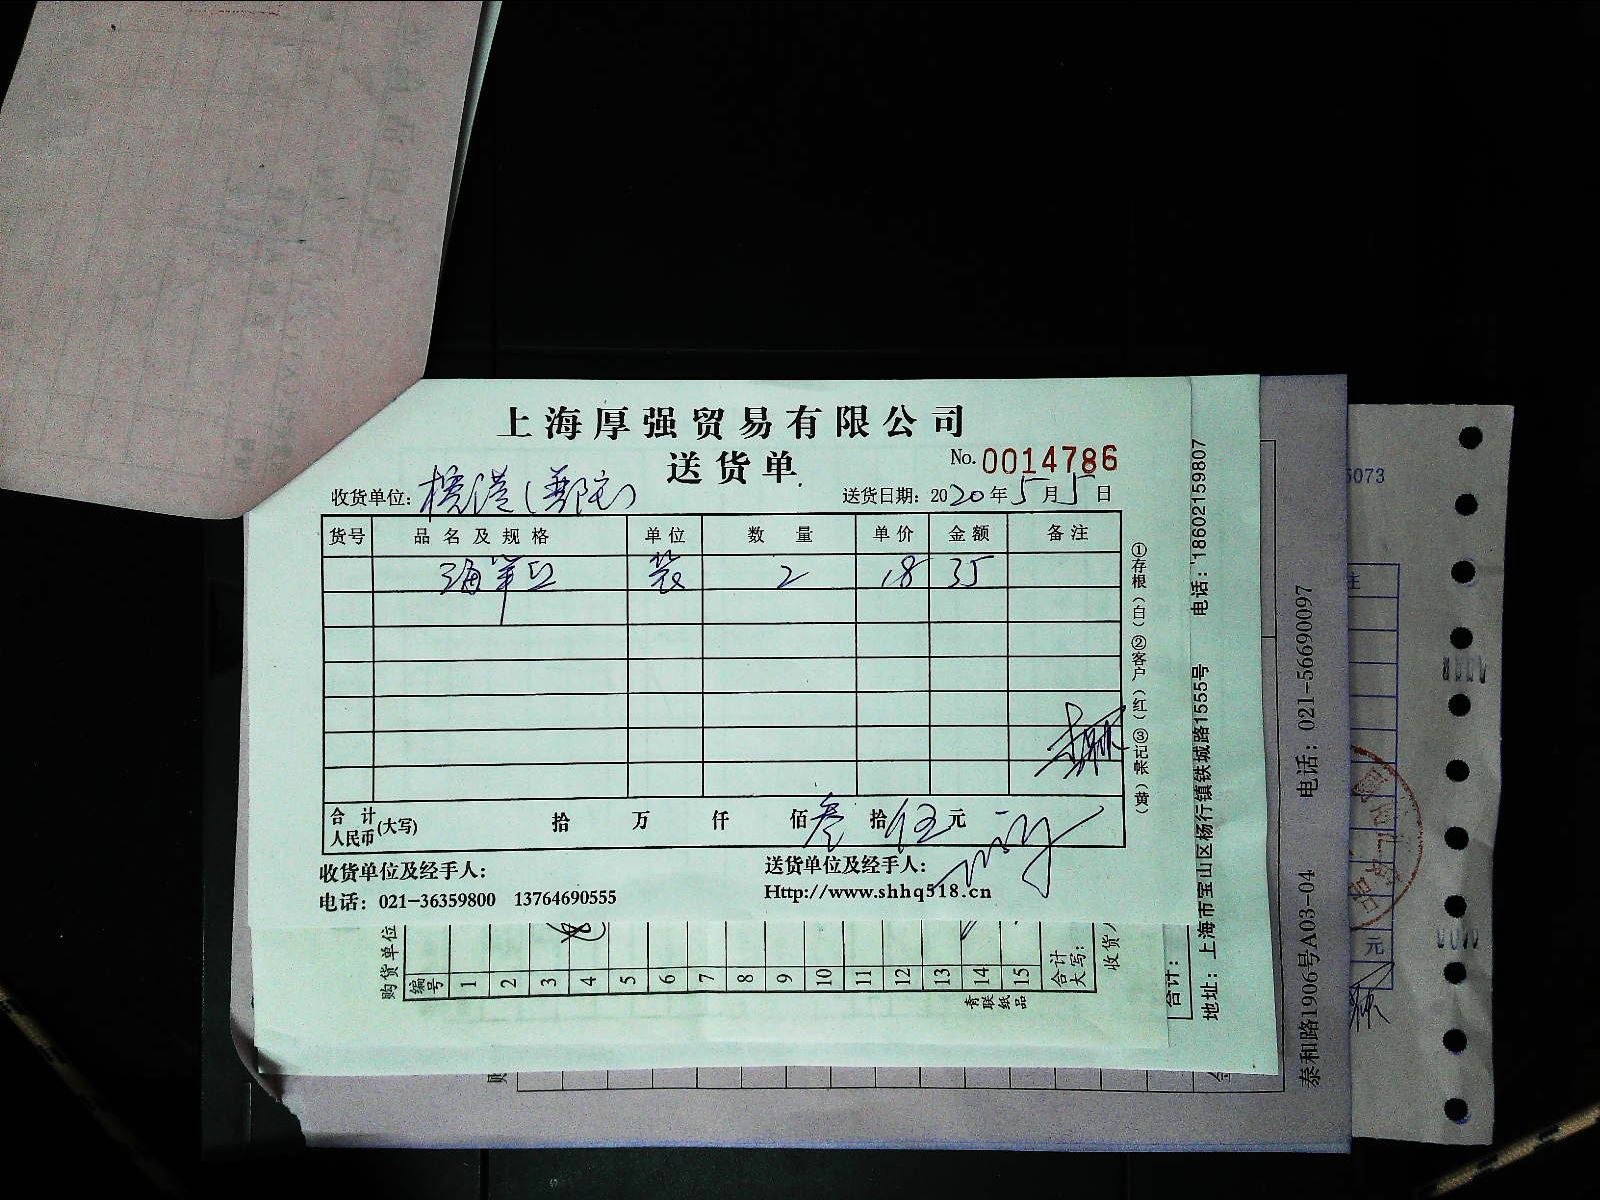 上海厚强贸易有限公司
送货单
No. 0014786
收货单位:
送货日期: 2020年5月5日
货号 品名及规格 单位 数量 单价 金额 备注
2 18 35
合计人民币(大写) 拾 万 仟 佰 叁拾伍元
收货单位及经手人:
送货单位及经手人:
电话: 021-36359800 13764690555
Http://www.shhq518.cn
①存根(白)②客户(红)③记录(黄)
地址: 上海市宝山区杨行镇铁城路1555号 电话: 18602159807
泰和路1906号A03-04 电话: 021-56690097
购货单位
编号 1 2 3 4 5 6 7 8 9 10 11 12 13 14 15 合计大写:
收货人
青联纸品
合计:
5073
元